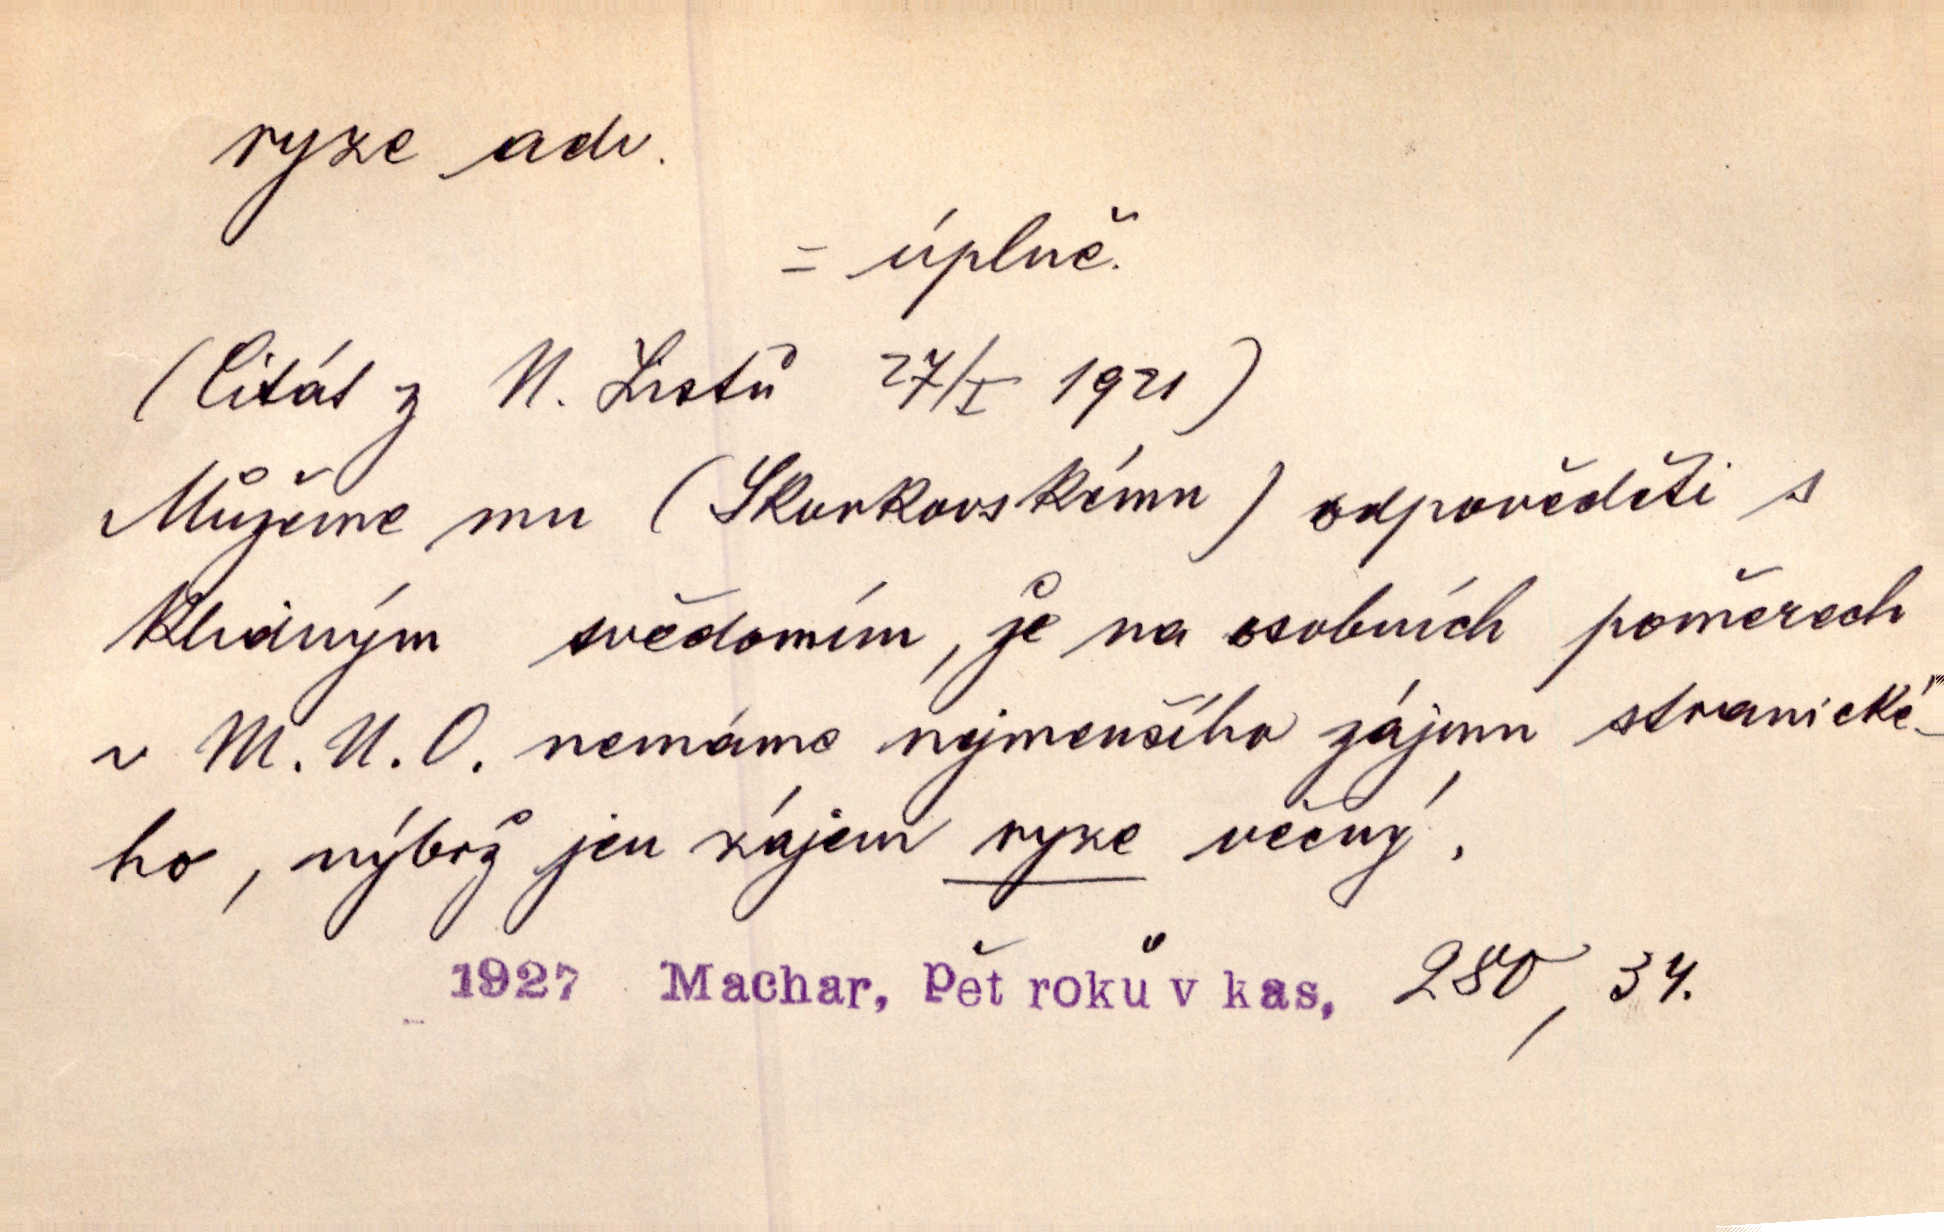 ryze adv.
= úplně.
(Citát z N. Listů 27/I 1921)
Můžeme mu (Skorkovskému) odpověděti s
klidným svědomím, že na osobních poměrech
v M.N.O. nemáme nejmenšího zájmu stranické-
ho, nýbrž jen zájem ryze věcný.
1927 Machar, Pět roků v kas, 280, 34.